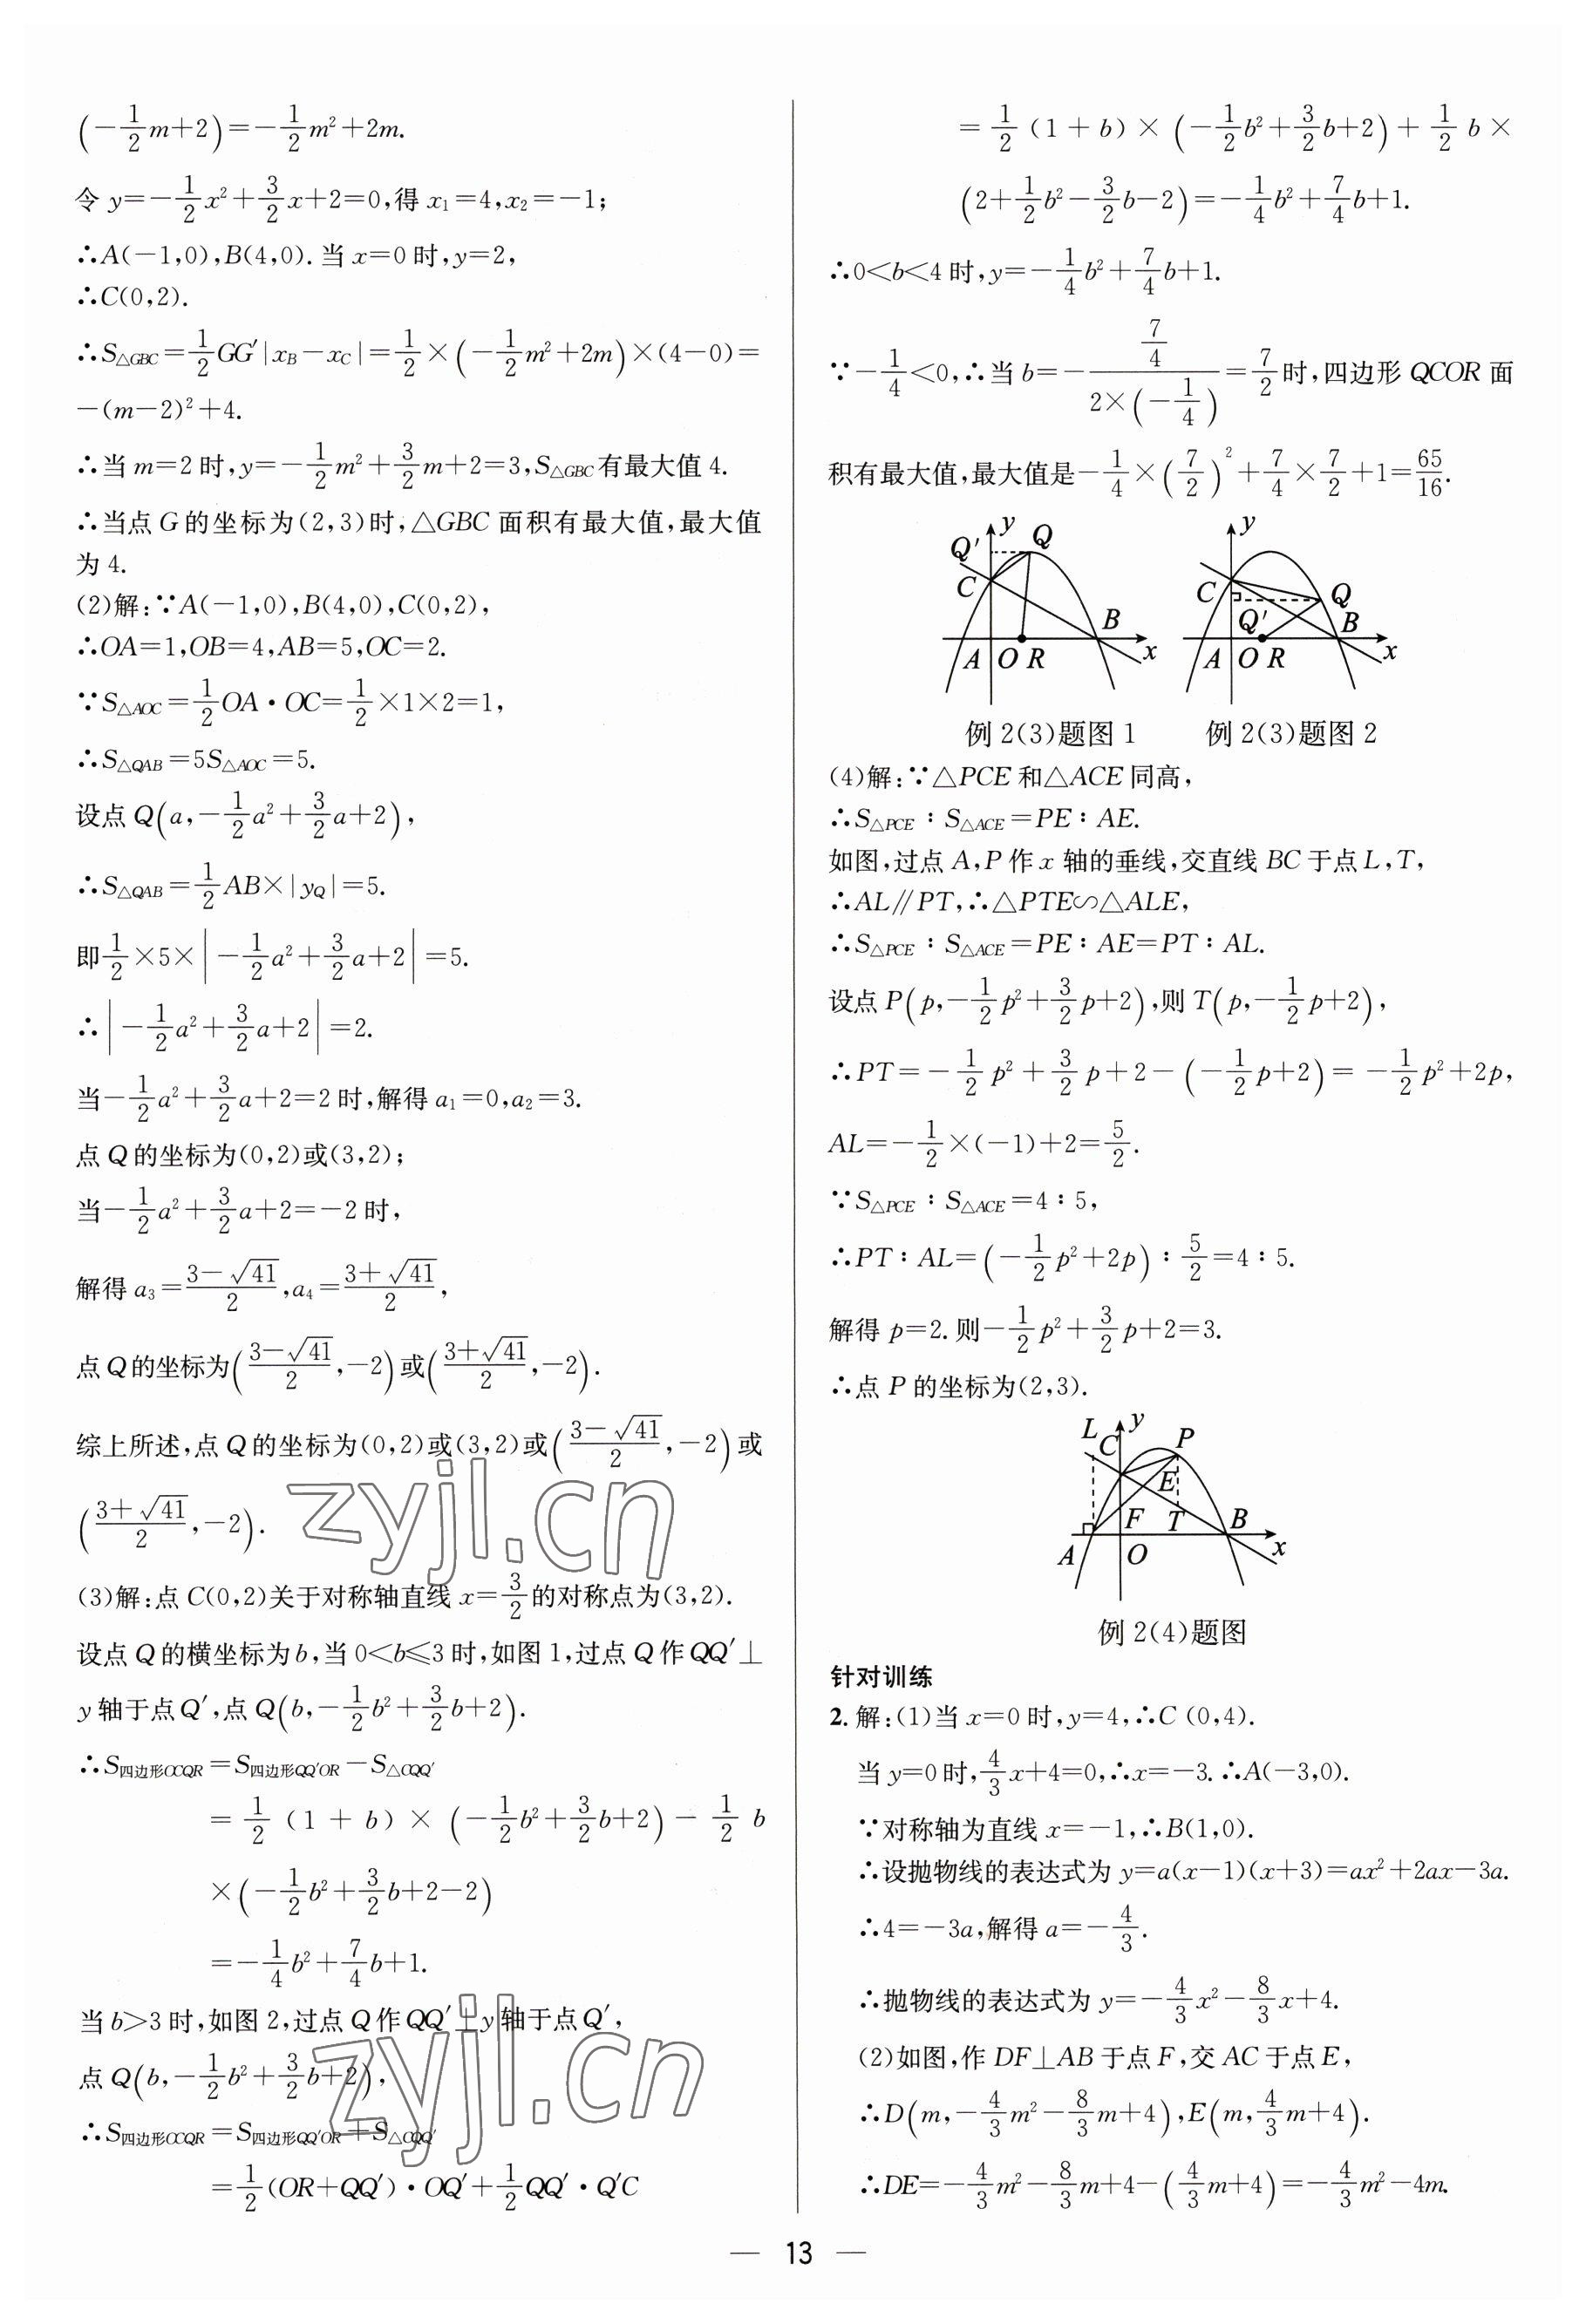 (-1/2m+2)=-1/2m²+2m.
令 y=-1/2x²+3/2x+2=0,得 x₁=4,x₂=-1;
∴A(-1,0),B(4,0).当 x=0 时,y=2,
∴C(0,2).
∴S△GBC=1/2GG′|x_B-x_C|=1/2×(-1/2m²+2m)×(4-0)=
-(m-2)²+4.
∴当 m=2 时,y=-1/2m²+3/2m+2=3,S△GBC有最大值 4.
∴当点 G 的坐标为(2,3)时,△GBC 面积有最大值,最大值
为 4.
(2)解:∵A(-1,0),B(4,0),C(0,2),
∴OA=1,OB=4,AB=5,OC=2.
∵S△AOC=1/2OA·OC=1/2×1×2=1,
∴S△QAB=5S△AOC=5.
设点 Q(a,-1/2a²+3/2a+2),
∴S△QAB=1/2AB×|y_Q|=5.
即1/2×5×|-1/2a²+3/2a+2|=5.
∴|-1/2a²+3/2a+2|=2.
当-1/2a²+3/2a+2=2 时,解得 a₁=0,a₂=3.
点 Q 的坐标为(0,2)或(3,2);
当-1/2a²+3/2a+2=-2 时,
解得 a₃=(3-√41)/2,a₄=(3+√41)/2,
点 Q 的坐标为((3-√41)/2,-2)或((3+√41)/2,-2).
综上所述,点 Q 的坐标为(0,2)或(3,2)或((3-√41)/2,-2)或
((3+√41)/2,-2).
(3)解:点 C(0,2)关于对称轴直线 x=3/2的对称点为(3,2).
设点 Q 的横坐标为 b,当 0<b≤3 时,如图 1,过点 Q 作 QQ′⊥
y 轴于点 Q′,点 Q(b,-1/2b²+3/2b+2).
∴S四边形OCQR=S四边形QQ′OR-S△CQQ′
=1/2(1+b)×(-1/2b²+3/2b+2)-1/2b
×(-1/2b²+3/2b+2-2)
=-1/4b²+7/4b+1.
当 b>3 时,如图 2,过点 Q 作 QQ′⊥y 轴于点 Q′,
点 Q(b,-1/2b²+3/2b+2),
∴S四边形OCQR=S四边形QQ′OR+S△CQQ′
=1/2(OR+QQ′)·OQ′+1/2QQ′·Q′C
=1/2(1+b)×(-1/2b²+3/2b+2)+1/2b×
(2+1/2b²-3/2b-2)=-1/4b²+7/4b+1.
∴0<b<4 时,y=-1/4b²+7/4b+1.
∵-1/4<0,∴当 b=-(7/4)/(2×(-1/4))=7/2时,四边形 QCOR 面
积有最大值,最大值是-1/4×(7/2)²+7/4×7/2+1=65/16.
y Q′ Q C B A O R x
y C Q Q′ B A O R x
例 2(3)题图 1 例 2(3)题图 2
(4)解:∵△PCE 和△ACE 同高,
∴S△PCE∶S△ACE=PE∶AE.
如图,过点 A,P 作 x 轴的垂线,交直线 BC 于点 L,T,
∴AL∥PT,∴△PTE∽△ALE,
∴S△PCE∶S△ACE=PE∶AE=PT∶AL.
设点 P(p,-1/2p²+3/2p+2),则 T(p,-1/2p+2),
∴PT=-1/2p²+3/2p+2-(-1/2p+2)=-1/2p²+2p,
AL=-1/2×(-1)+2=5/2.
∵S△PCE∶S△ACE=4∶5,
∴PT∶AL=(-1/2p²+2p)∶5/2=4∶5.
解得 p=2.则-1/2p²+3/2p+2=3.
∴点 P 的坐标为(2,3).
L y C P E F T B A O x
例 2(4)题图
针对训练
2.解:(1)当 x=0 时,y=4,∴C (0,4).
当 y=0 时,4/3x+4=0,∴x=-3.∴A(-3,0).
∵对称轴为直线 x=-1,∴B(1,0).
∴设抛物线的表达式为 y=a(x-1)(x+3)=ax²+2ax-3a.
∴4=-3a,解得 a=-4/3.
∴抛物线的表达式为 y=-4/3x²-8/3x+4.
(2)如图,作 DF⊥AB 于点 F,交 AC 于点 E,
∴D(m,-4/3m²-8/3m+4),E(m,4/3m+4).
∴DE=-4/3m²-8/3m+4-(4/3m+4)=-4/3m²-4m.
— 13 —
zyjl.cn
zyjl.cn